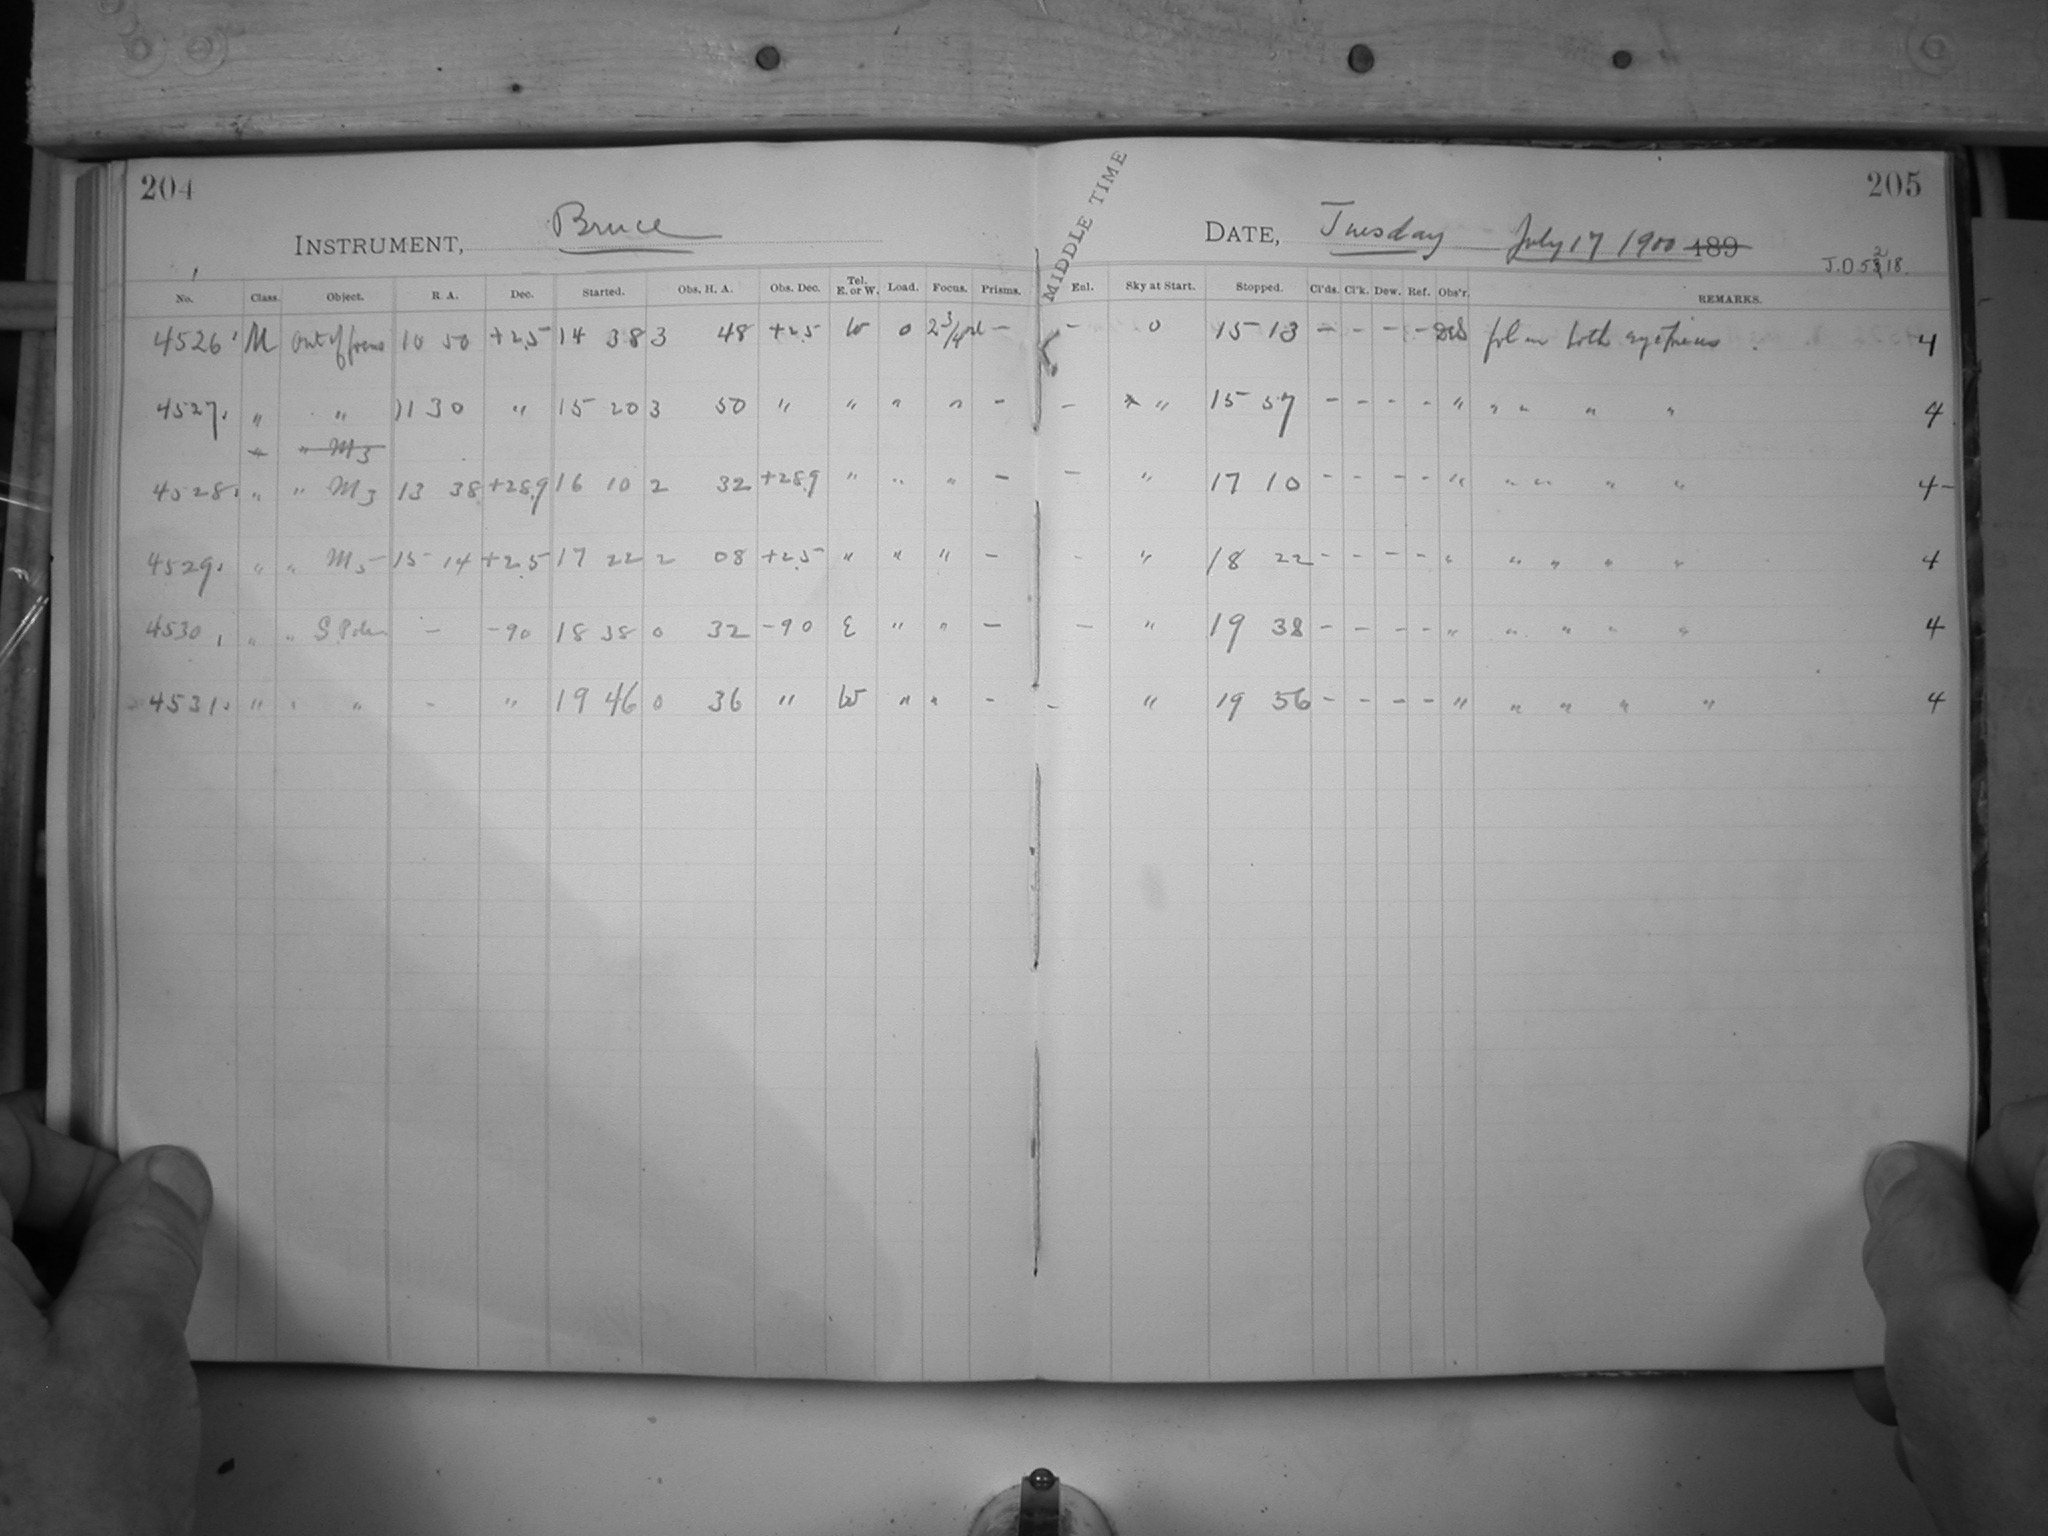 204
INSTRUMENT, Bruce
No. Class. Object. R. A. Dec. Started. Obs. H. A. Obs. Dec. Tel. E. or W. Load. Focus. Prisms.
4526 M out of focus 10 50 +2.5 14 38 3 48 +2.5 W 0 2 3/4 —
4527. " " 11 30 " 15 20 3 50 " " " " —
" " M3
4528. " " M3 13 38 +28.9 16 10 2 32 +28.9 " " " —
4529. " " M5 15 14 +2.5 17 22 2 08 +2.5 " " " —
4530 " " S Pole — -90 18 38 0 32 -90 E " " —
4531. " " " - " 19 46 0 36 " W " " -
MIDDLE TIME
205
DATE, Tuesday July 17 1900 189
J.D 5218.
Enl. Sky at Start. Stopped. Cl'ds. Cl'k. Dew. Ref. Obs'r. REMARKS.
- 0 15 13 - - - - fol on both eyepieces. 4
- " 15 57 - - - - " " " " " 4
- " 17 10 - - - - " " " " " 4-
- " 18 22 - - - - " " " " " 4
- " 19 38 - - - - " " " " " 4
- " 19 56 - - - - " " " " " 4